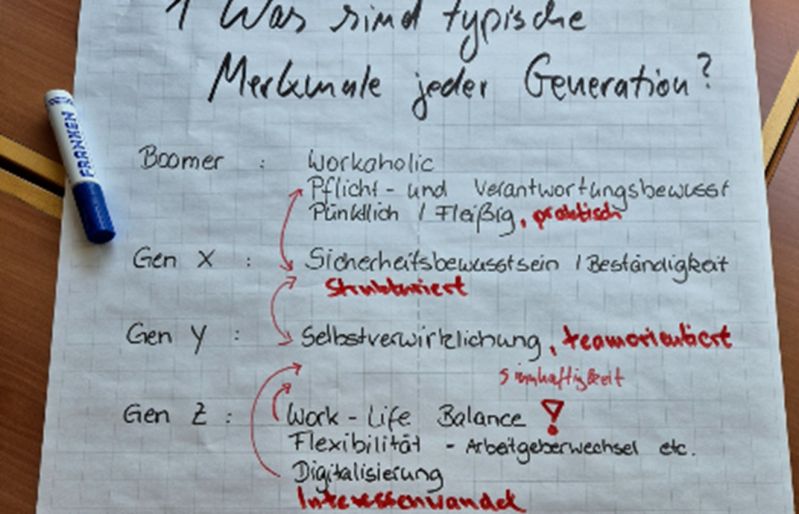 1 Was sind typische
Merkmale jeder Generation?
FRANKEN
Boomer : Workaholic
Pflicht- und Verantwortungsbewusst
Pünktlich / Fleißig, praktisch
Gen X : Sicherheitsbewusstsein / Beständigkeit
Strukturiert
Gen Y : Selbstverwirklichung, teamorientiert
Sinnhaftigkeit
Gen Z : Work-Life Balance !
Flexibilität - Arbeitgeberwechsel etc.
Digitalisierung
Interessenwandel